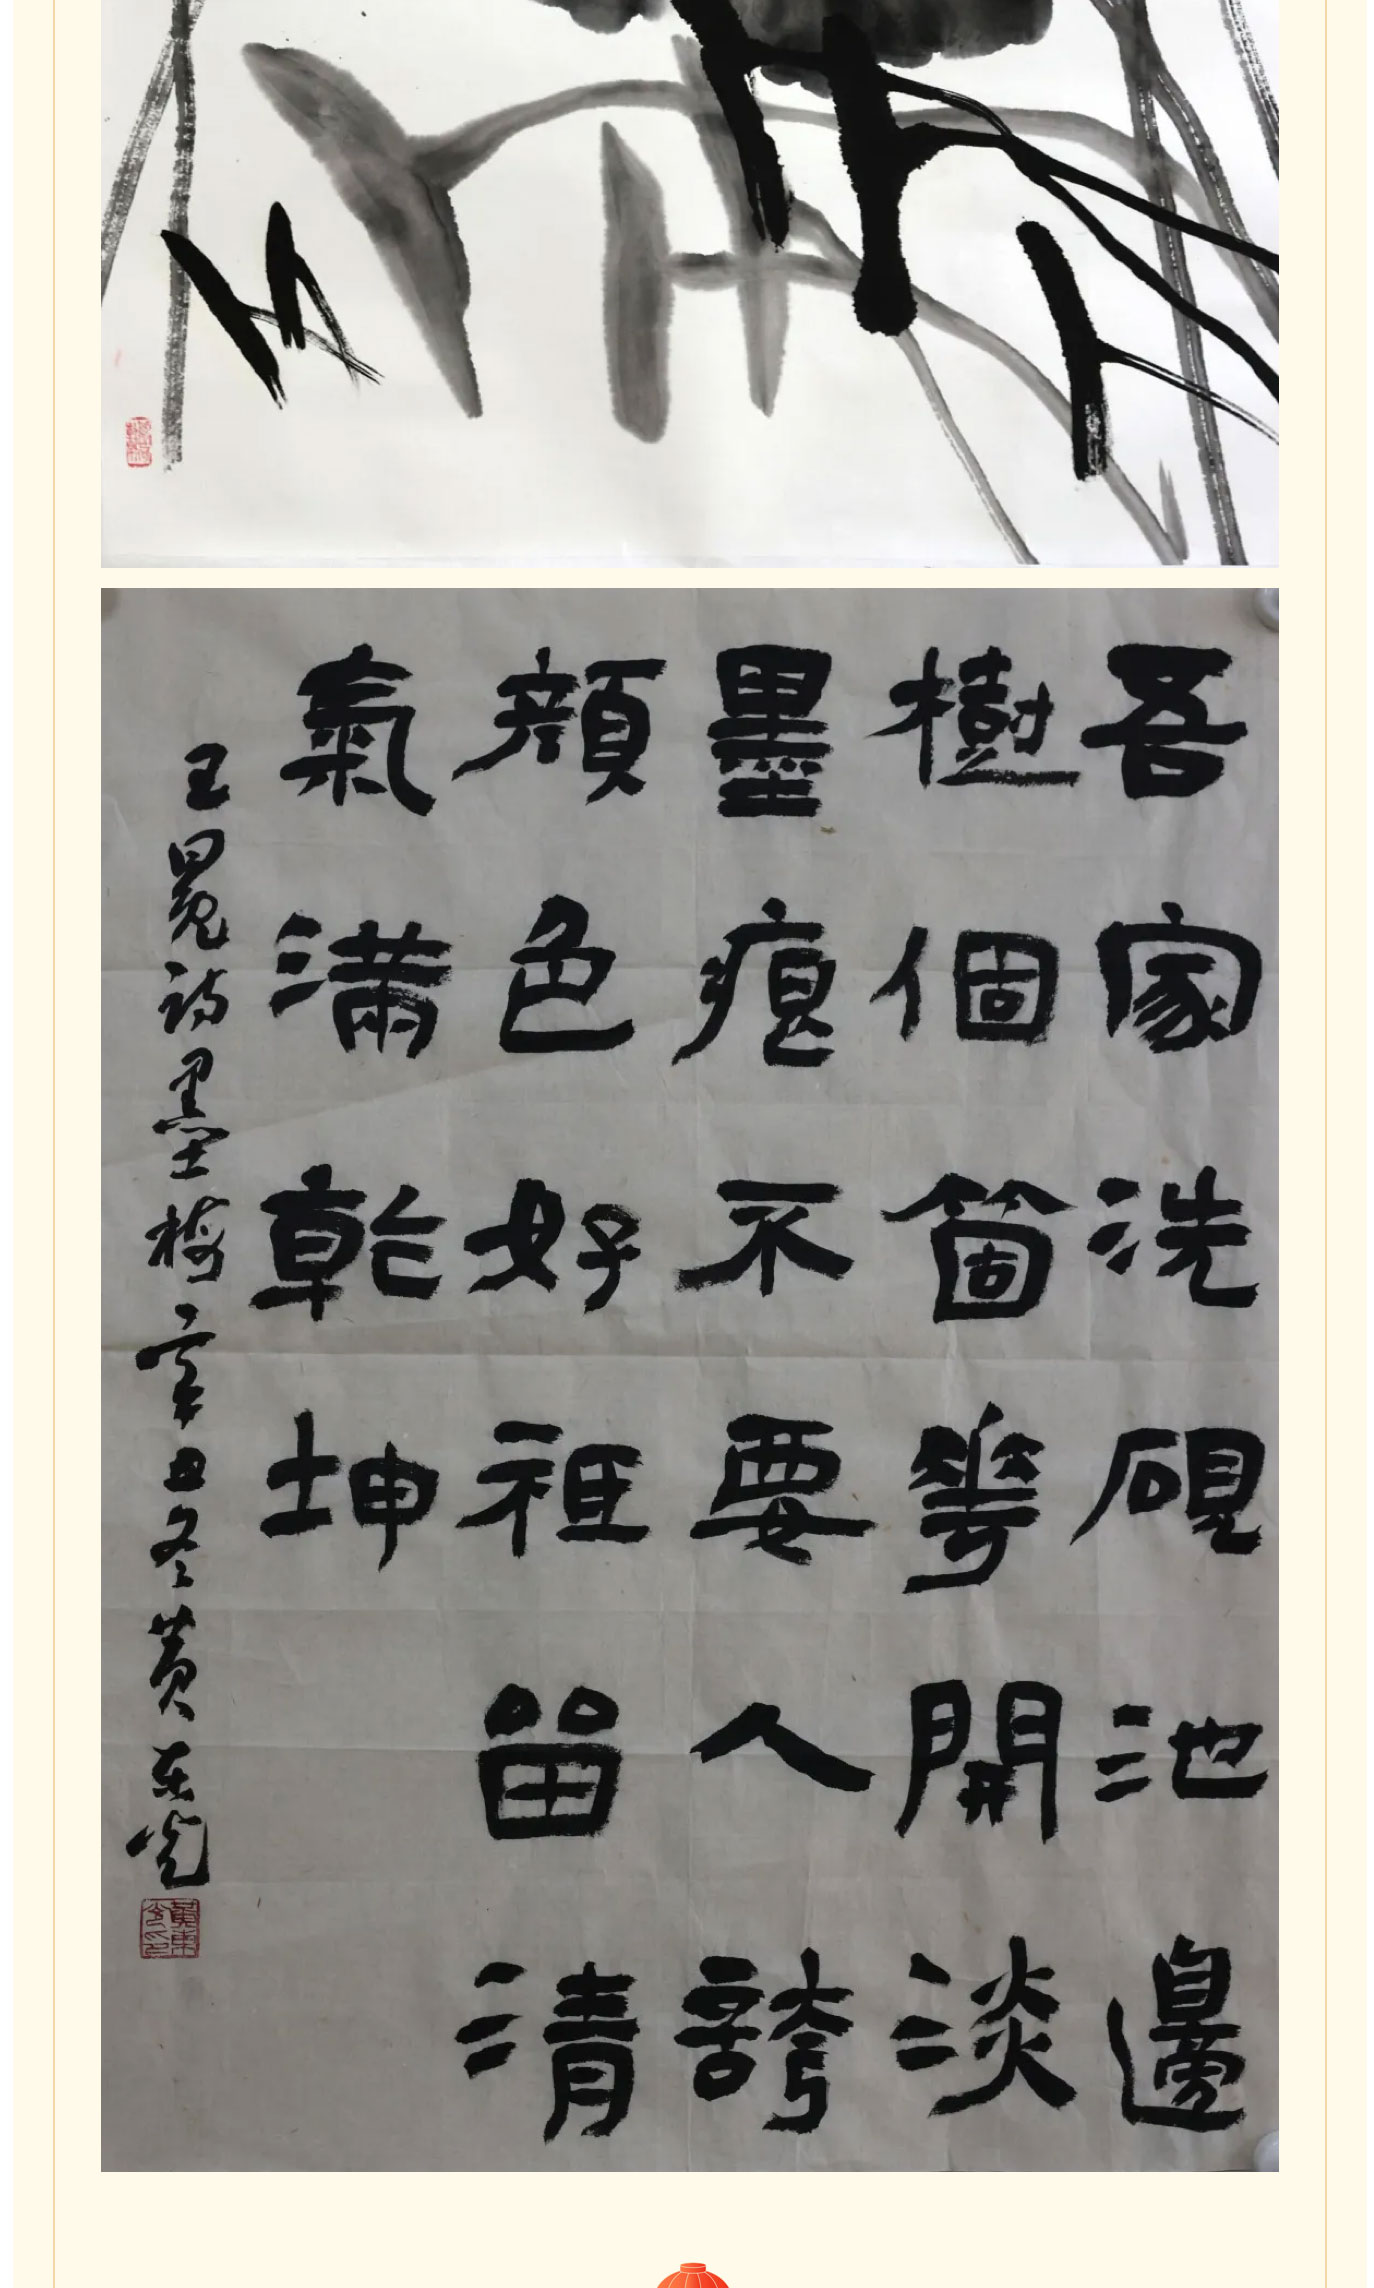 吾家洗硯池邊
樹個箇華開淡
墨痕不要人誇
顏色好祗畱清
氣滿乾坤
王冕詩墨梅辛丑冬黃東光